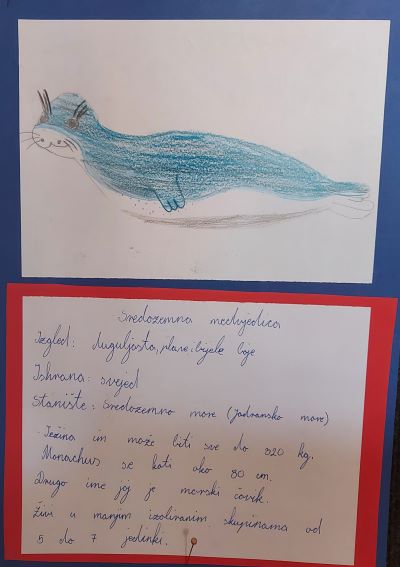 Sredozemna medvjedica
Izgled: duguljasta, plave i bijele boje
Ishrana: svejed
Stanište: Sredozemno more (Jadransko more)
Težina im može biti sve do 320 kg.
Monachus se koti oko 80 cm.
Drugo ime joj je morski čovik.
Živi u manjim izoliranim skupinama od
5 do 7 jedinki.